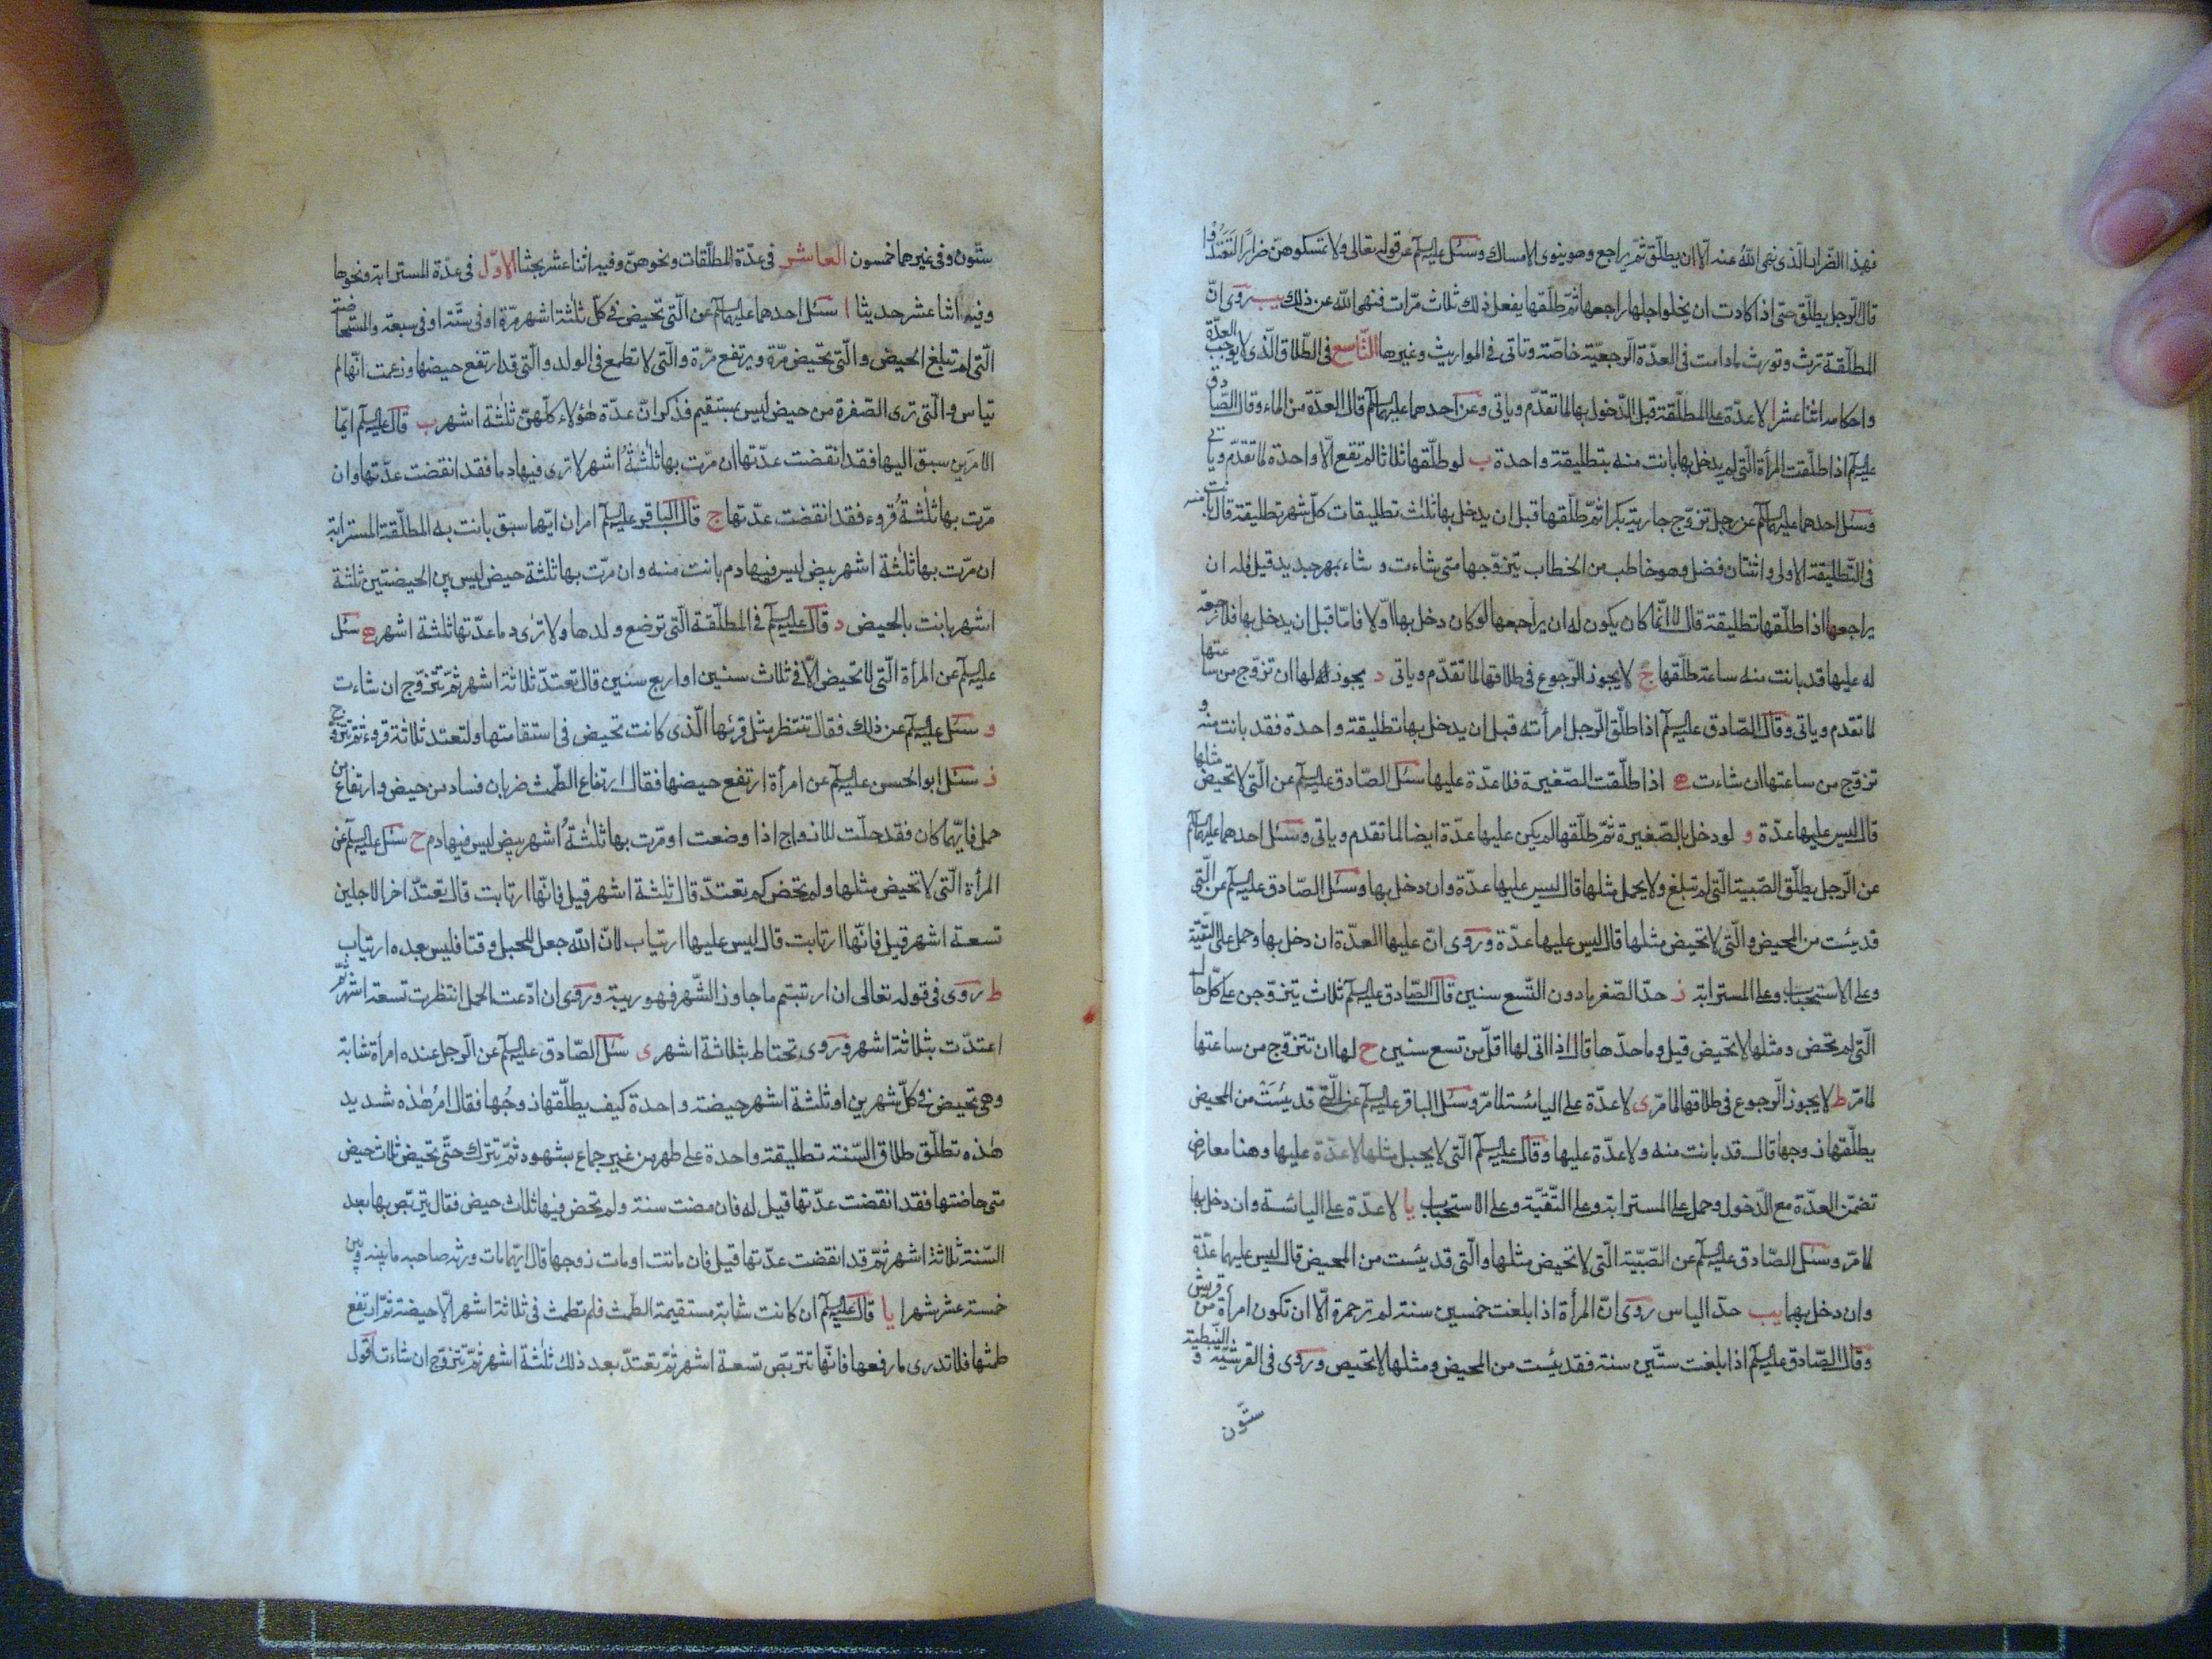 فهذا الضّرار الّذى نهى اللّه عنه الّا ان يطلّق ثمّ يراجع وهو ينوى الامساك وسئل عليه السلم عن قوله تعالى ولا تمسكوهنّ ضرارًا لتعتدوا
قال الرّجل يطلّق حتى اذا كادت ان يخلوا اجلها راجعها ثمّ طلّقها يفعل ذلك ثلاث مرّات فنهى اللّه عن ذلك يب روى انّ
المطلّقة ترث وتورث مادامت فى العدّة الرجعيّة خاصّة وتاتى فى المواريث وغيرها التّاسع فى الطّلاق الّذى لا يوجب العدّة
واحكامه اثنا عشر ا لا عدّة على المطلّقة قبل الدّخول بها لما تقدّم وياتى وعن احدهما عليهما السلم قال العدّة من الماء وقال الصّادق
عليه السلم اذا طلّقت المرأة الّتى لم يدخل بها بانت منه بتطليقة واحدة ب لو طلّقها ثلاثا لم تقع الّا واحدة لما تقدّم وياتى
وسئل احدهما عليهما السلم عن رجل تزوّج جارية بكرا ثمّ طلّقها قبل ان يدخل بها ثلث تطليقات كلّ شهر تطليقة قال بانت منه
فى التّطليقة الاولى واثنتان فضل وهو خاطب من الخطاب يتزوّجها متى شاءت وشاء بمهر جديد قيل فله ان
يراجعها اذا طلّقها تطليقة قال لا انّما كان يكون له ان يراجعها لو كان دخل بها اوّلا فامّا قبل ان يدخل بها فلا رجعة
له عليها قد بانت منه ساعة طلّقها ج لا يجوز الرّجوع فى طلاقها لما تقدّم وياتى د يجوز لها ان تزوّج من ساعتها
لما تقدم وياتى وقال الصّادق عليه السلم اذا طلّق الرّجل امرأته قبل ان يدخل بها تطليقة واحدة فقد بانت منه و
تزوّج من ساعتها ان شاءت ه اذا طلّقت الصّغيرة فلا عدّة عليها سئل الصّادق عليه السلم عن الّتى لا تحيض مثلها
قال ليس عليها عدّة و لو دخل بالصّغيرة ثمّ طلّقها لم يكن عليها عدّة ايضا لما تقدم وياتى وسئل احدهما عليهما السلم
عن الرّجل يطلّق الصّبية الّتى لم تبلغ ولا يحمل مثلها قال ليس عليها عدّة وان دخل بها وسئل الصّادق عليه السلم عن الّتى
قد يئست من المحيض والّتى لا تحيض مثلها قال ليس عليها عدّة وروى انّ عليها العدّة ان دخل بها وحمل على التّقيّة
وعلى الاستحباب وعلى المسترابة ز حدّ الصّغر ما دون التّسع سنين قال الصّادق عليه السلم ثلاث يتزوّجن على كلّ حال
الّتى لم تحض ومثلها لا تحيض قيل وما حدّها قال اذا اتى لها اقلّ من تسع سنين ح لها ان تتزوّج من ساعتها
لما مرّ ط لا يجوز الرّجوع فى طلاقها لما مرّ ى لا عدّة على اليائسة لما مرّ وسئل الباقر عليه السلم عن الّتى قد يئست من المحيض
يطلّقها زوجها قال قد بانت منه ولا عدّة عليها وقال عليه السلم الّتى لا يحبل مثلها لا عدّة عليها وهنا معارض
تضمّن العدّة مع الدّخول وحمل على المسترابة وعلى التّقيّة وعلى الاستحباب يا لا عدّة على اليائسة وان دخل بها
لما مرّ وسئل الصّادق عليه السلم عن الصّبيّة الّتى لا تحيض مثلها والّتى قد يئست من المحيض قال ليس عليهما عدّة
وان دخل بهما يب حدّ الياس روى انّ المرأة اذا بلغت خمسين سنة لم تر حمرة الّا ان تكون امرأة من قريش
وقال الصّادق عليه السلم اذا بلغت ستّين سنة فقد يئست من المحيض ومثلها لا تحيض وروى فى القرشيّة والنّبطية
ستّون
ستّون وفى غيرهما خمسون العاشر فى عدّة المطلّقات ونحوهنّ وفيه اثنا عشر بحثا الاوّل فى عدّة المسترابة ونحوها
وفيه اثنا عشر حديثا ا سئل احدهما عليهما السلم عن الّتى تحيض فى كلّ ثلثة اشهر مرّة او فى ستّة او فى سبعة والمستحاضة
الّتى لم تبلغ الحيض والّتى تحيض مرّة ويرتفع مرّة والّتى لا تطمع فى الولد والّتى قد ارتفع حيضها وزعمت انّها لم
تياس والّتى ترى الصّفرة من حيض ليس بمستقيم فذكر انّ عدّة هؤلاء كلّهنّ ثلثة اشهر ب قال عليه السلم ايّما
الامرين سبق اليها فقد انقضت عدّتها ان مرّت بها ثلثة اشهر لا ترى فيها دما فقد انقضت عدّتها وان
مرّت بها ثلثة قروء فقد انقضت عدّتها ج قال الباقر عليه السلم امران ايّهما سبق بانت به المطلّقة المسترابة
ان مرّت بها ثلثة اشهر بيض ليس فيها دم بانت منه وان مرّت بها ثلثة حيض ليس بين الحيضتين ثلثة
اشهر بانت بالحيض د قال عليه السلم فى المطلّقة الّتى ترضع ولدها ولا ترى دما عدّتها ثلثة اشهر ه سئل
عليه السلم عن المرأة الّتى لا تحيض الّا فى ثلاث سنين او اربع سنين قال تعتدّ ثلاثة اشهر ثمّ تتزوّج ان شاءت
و سئل عليه السلم عن ذلك فقال تنتظر مثل قرئها الّذى كانت تحيض فى استقامتها ولتعتد ثلاثة قروء ثمّ تتزوّج
ز سئل ابو الحسن عليه السلم عن امرأة ارتفع حيضها فقال ارتفاع الطّمث ضربان فساد من حيض وارتفاع من
حمل فايّهما كان فقد حلّت للازواج اذا وضعت او مرّت بها ثلثة اشهر بيض ليس فيها دم ح سئل عليه السلم عن
المرأة الّتى لا تحيض مثلها ولم تحض كم تعتدّ قال ثلثة اشهر قيل فانّها ارتابت قال تعتدّ اخر الاجلين
تسعة اشهر قيل فانّها ارتابت قال ليس عليها ارتياب لانّ اللّه جعل للحبل وقتا فليس بعده ارتياب
ط روى فى قوله تعالى ان ارتبتم ما جاوز الشّهر فهو ريبة وروى ان ادّعت الحمل انتظرت تسعة اشهر ثمّ
اعتدّت بثلاثة اشهر وروى تحتاط بثلاثة اشهر ى سئل الصّادق عليه السلم عن الرّجل عنده امرأة شابّة
وهى تحيض فى كلّ شهرين او ثلثة اشهر حيضة واحدة كيف يطلّقها زوجها فقال امر هذه شديد
هذه تطلّق طلاق السّنة تطليقة واحدة على طهر من غير جماع بشهود ثمّ تترك حتّى تحيض ثلاث حيض
متى حاضتها فقد انقضت عدّتها قيل له فان مضت سنة ولم تحض فيها ثلاث حيض فقال يتربّص بها بعد
السّنة ثلاثة اشهر ثمّ قد انقضت عدّتها قيل فان ماتت او مات زوجها قال ايّهما مات ورثه صاحبه ما بينه وبين
خمسة عشر شهرا يا قال عليه السلم ان كانت شابّة مستقيمة الطّمث فلم تطمث فى ثلاثة اشهر الّا حيضة ثمّ ارتفع
طمثها فلا تدرى ما رفعها فانّها تتربّص تسعة اشهر ثمّ تعتدّ بعد ذلك ثلثة اشهر ثمّ تتزوّج ان شاءت اقول